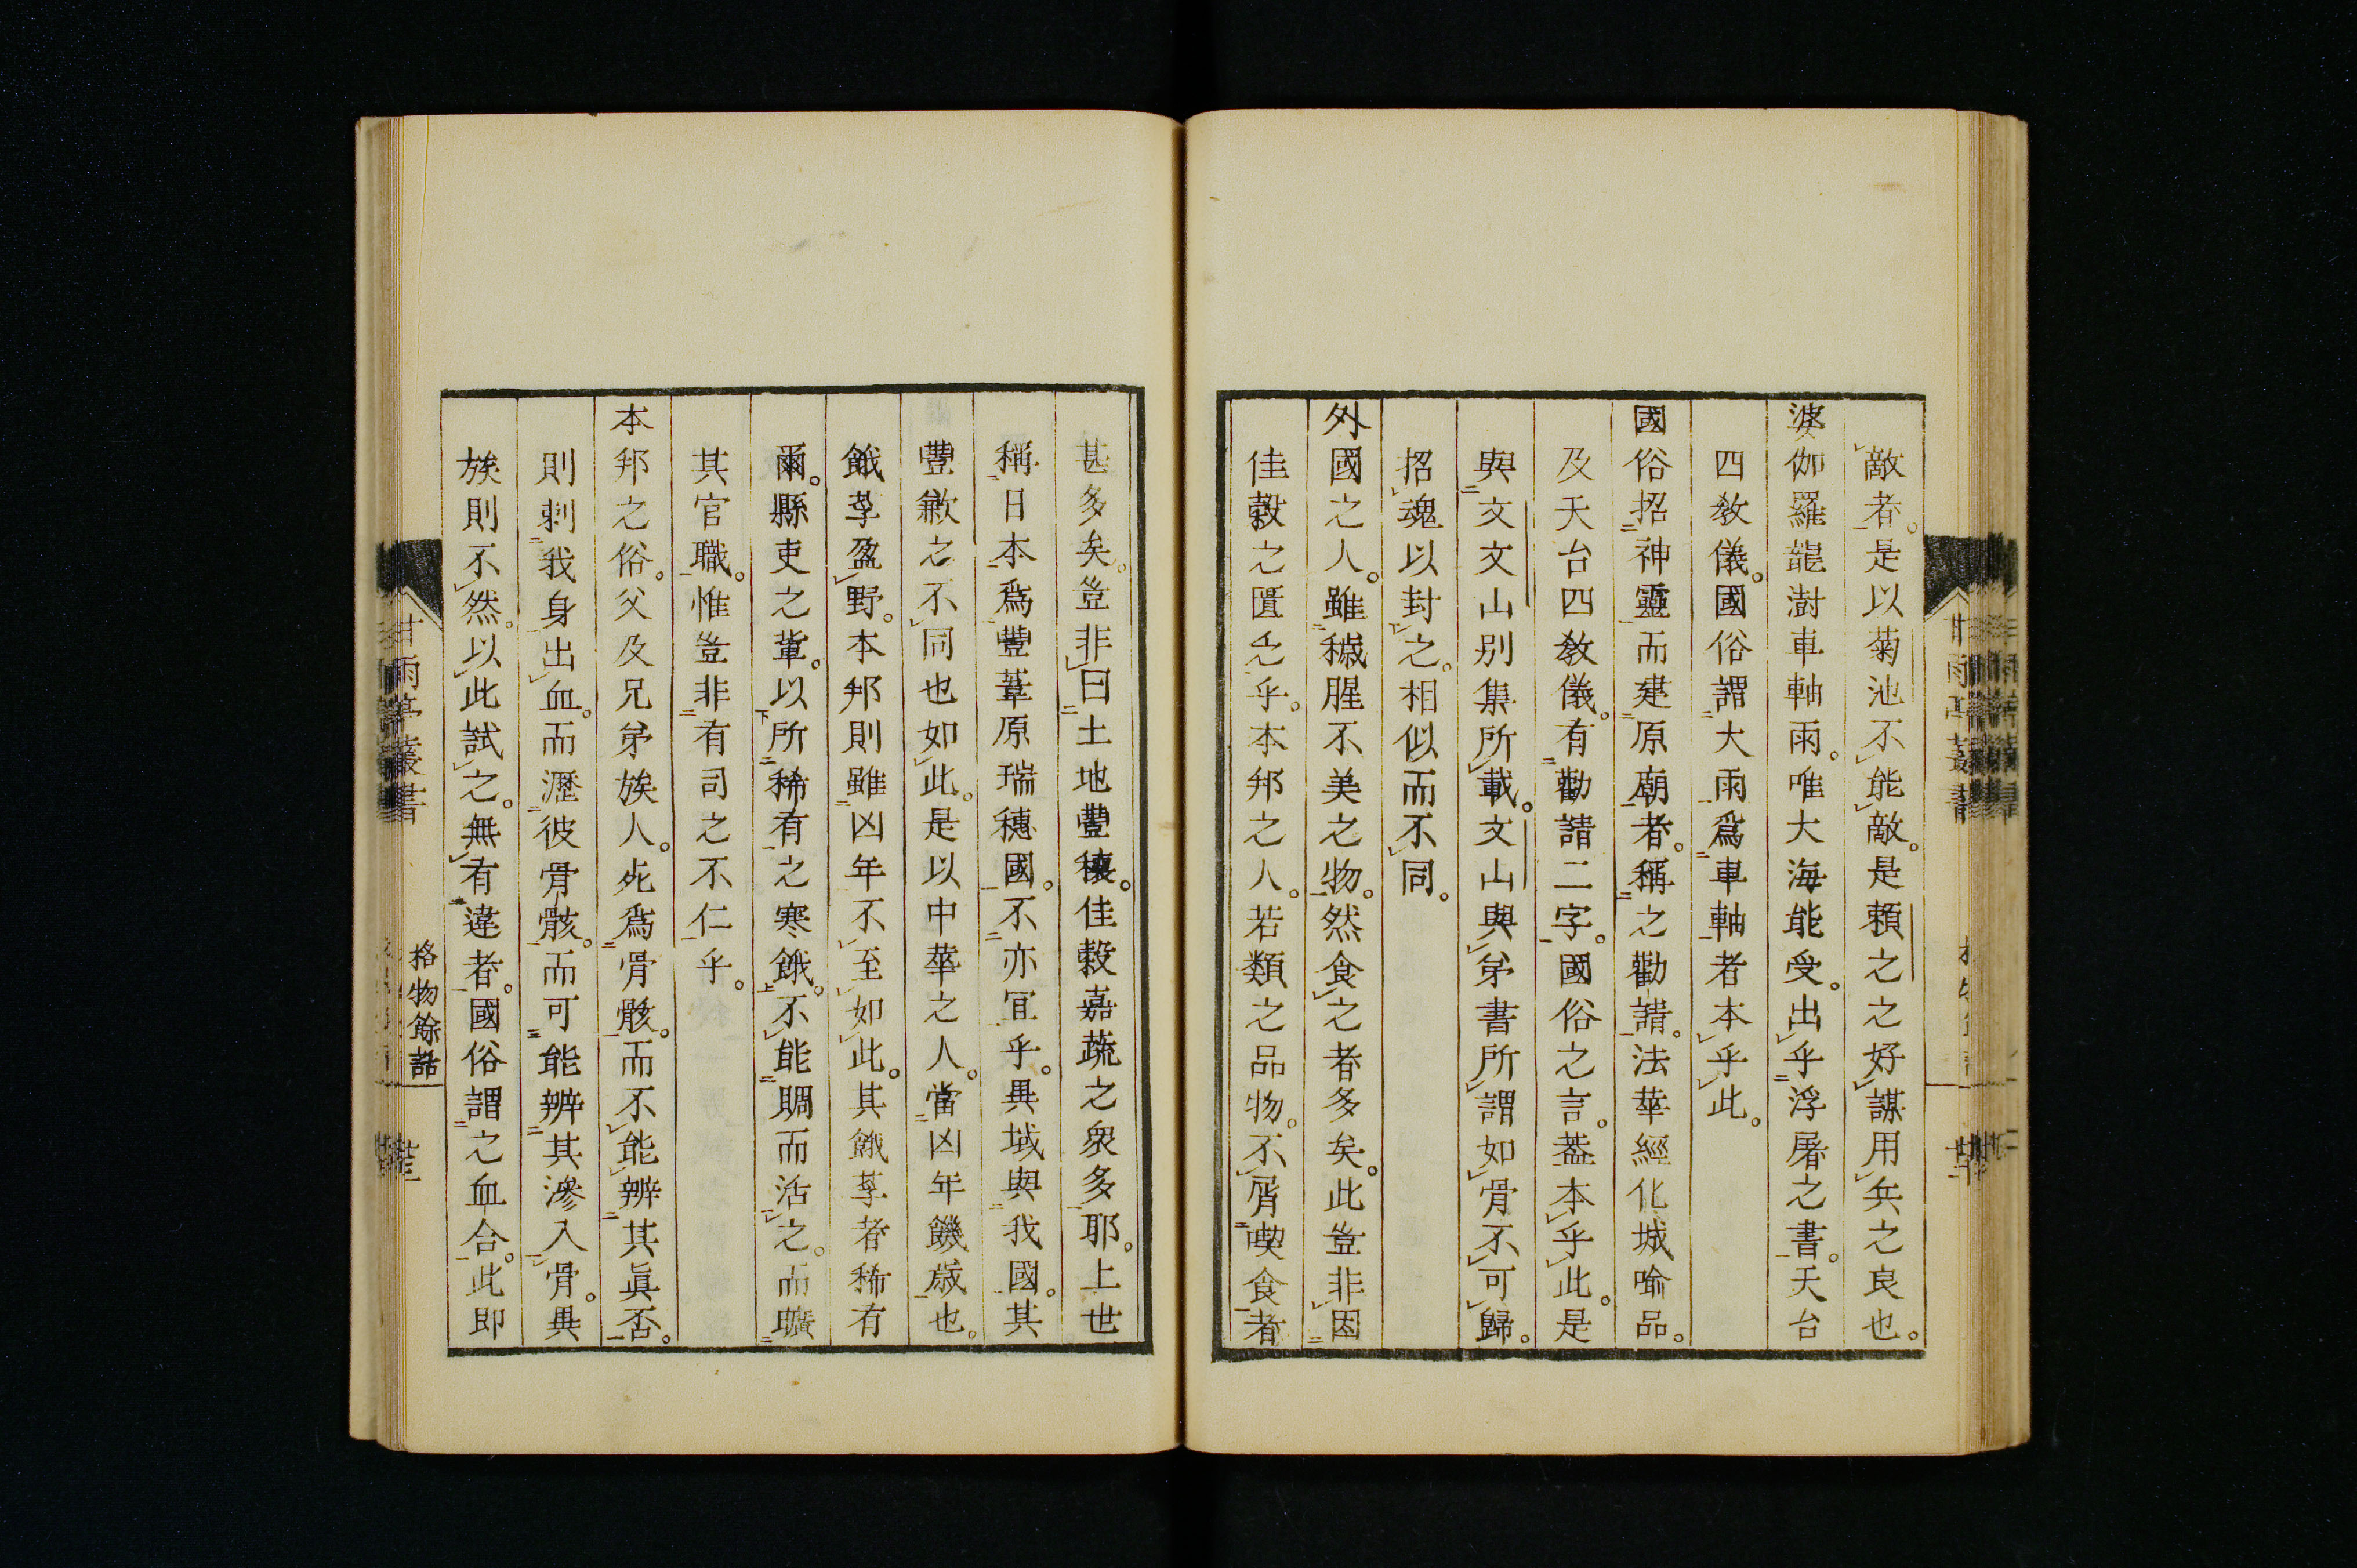 敵者。是以菊池不能敵。是頼之之好謀用兵之良也。
婆伽羅龍澍車軸雨。唯大海能受。出乎浮屠之書。天台
四教儀。國俗謂大雨爲車軸者本乎此。
國俗招神靈而建原廟者。稱之勸請。法華經化城喻品。
及天台四教儀。有勸請二字。國俗之言。葢本乎此。是
與文文山别集所載。文山與弟書所謂如骨不可歸。
招魂以封之。相似而不同。
外國之人。雖穢腥不美之物。然食之者多矣。此豈非因
佳穀之匱乏乎。本邦之人。若類之品物。不屑喫食者
甚多矣。豈非曰土地豐穰。佳穀嘉蔬之衆多耶。上世
稱日本爲豐葦原瑞穗國。不亦宜乎。異域與我國。其
豐歉之不同也如此。是以中華之人。當凶年饑歲也。
餓莩盈野。本邦則雖凶年不至如此。其餓莩者稀有
爾。縣吏之輩。以所稀有之寒餓。不能賙而活之。而曠
其官職。惟豈非有司之不仁乎。
本邦之俗。父及兄弟族人。死爲骨骸。而不能辨其眞否。
則剌我身出血。而瀝彼骨骸。而可能辨其滲入骨。異
族則不然。以此試之。無有違者。國俗謂之血合。此即
甘雨亭叢書
格物餘話
甘雨亭叢書